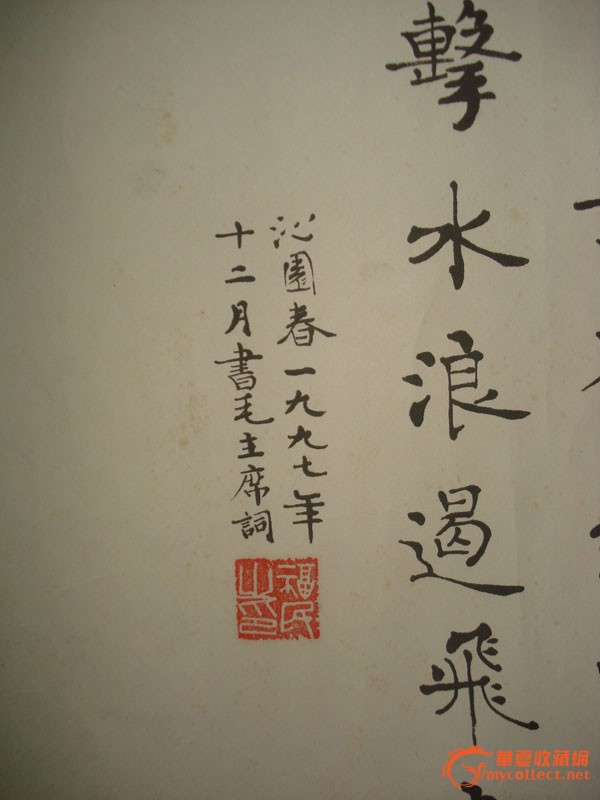 擊水浪遏飛
沁園春一九九七年
十二月書毛主席詞
福民之印
華夏收藏網
mycollect.net